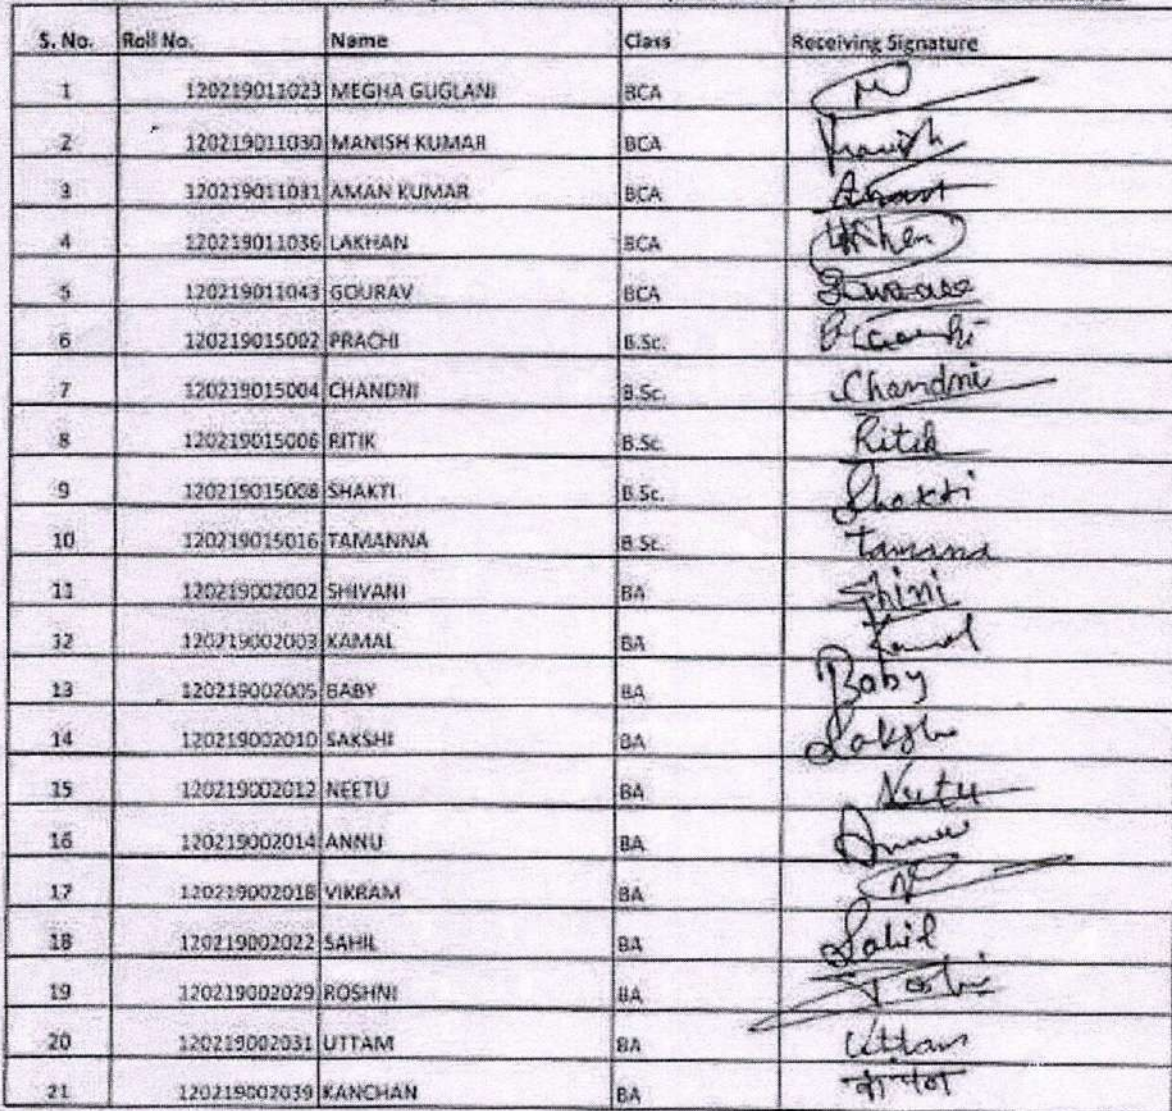 S. No. Roll No. Name Class Receiving Signature
1 120219011023 MEGHA GUGLANI BCA M
2 120219011030 MANISH KUMAR BCA Manish
3 120219011031 AMAN KUMAR BCA Aman
4 120219011036 LAKHAN BCA
5 120219011043 GOURAV BCA
6 120219015002 PRACHI B.Sc.
7 120219015004 CHANDNI B.Sc. Chandni
8 120219015006 RITIK B.Sc. Ritik
9 120219015008 SHAKTI B.Sc. Shakti
10 120219015016 TAMANNA B.Sc. Tamana
11 120219002002 SHIVANI BA
12 120219002003 KAMAL BA Kamal
13 120219002005 BABY BA Baby
14 120219002010 SAKSHI BA Sakshi
15 120219002012 NEETU BA Neetu
16 120219002014 ANNU BA Annu
17 120219002018 VIKRAM BA
18 120219002022 SAHIL BA Sahil
19 120219002029 ROSHNI BA
20 120219002031 UTTAM BA Uttam
21 120219002039 KANCHAN BA